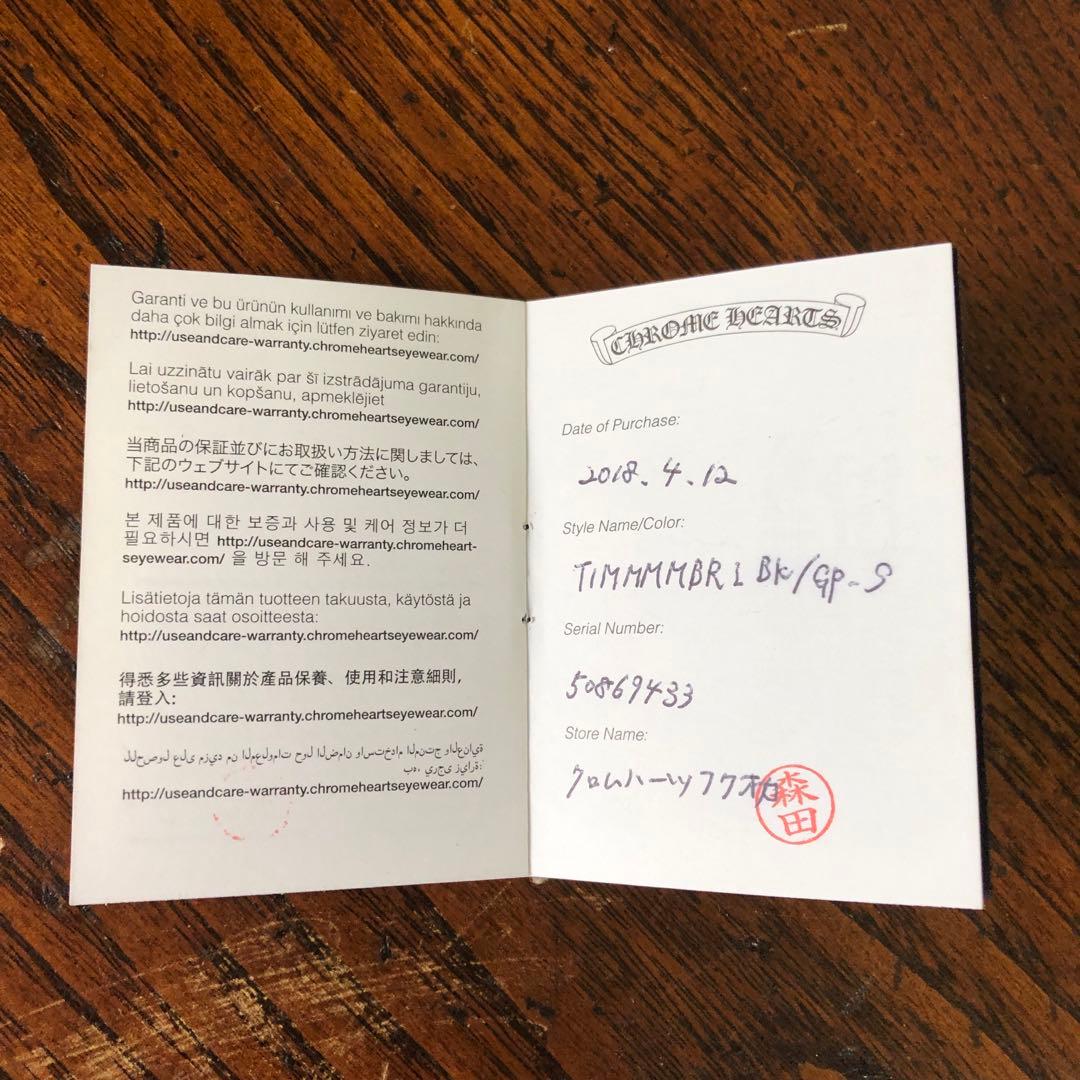 Garanti ve bu ürünün kullanımı ve bakımı hakkında
daha çok bilgi almak için lütfen ziyaret edin:
http://useandcare-warranty.chromeheartseyewear.com/
Lai uzzinātu vairāk par šī izstrādājuma garantiju,
lietošanu un kopšanu, apmeklējiet
http://useandcare-warranty.chromeheartseyewear.com/
当商品の保証並びにお取扱い方法に関しましては、
下記のウェブサイトにてご確認ください。
http://useandcare-warranty.chromeheartseyewear.com/
본 제품에 대한 보증과 사용 및 케어 정보가 더
필요하시면 http://useandcare-warranty.chromeheart-
seyewear.com/ 을 방문 해 주세요.
Lisätietoja tämän tuotteen takuusta, käytöstä ja
hoidosta saat osoitteesta:
http://useandcare-warranty.chromeheartseyewear.com/
得悉多些資訊關於產品保養、使用和注意細則,
請登入:
http://useandcare-warranty.chromeheartseyewear.com/
للحصول على مزيد من المعلومات حول الضمان واستخدام المنتج والعناية
به، يرجى زيارة:
http://useandcare-warranty.chromeheartseyewear.com/
CHROME HEARTS
Date of Purchase:
2018.4.12
Style Name/Color:
TIMMMMBR I BK/GP-S
Serial Number:
50869433
Store Name:
クロムハーツフクオカ
森田